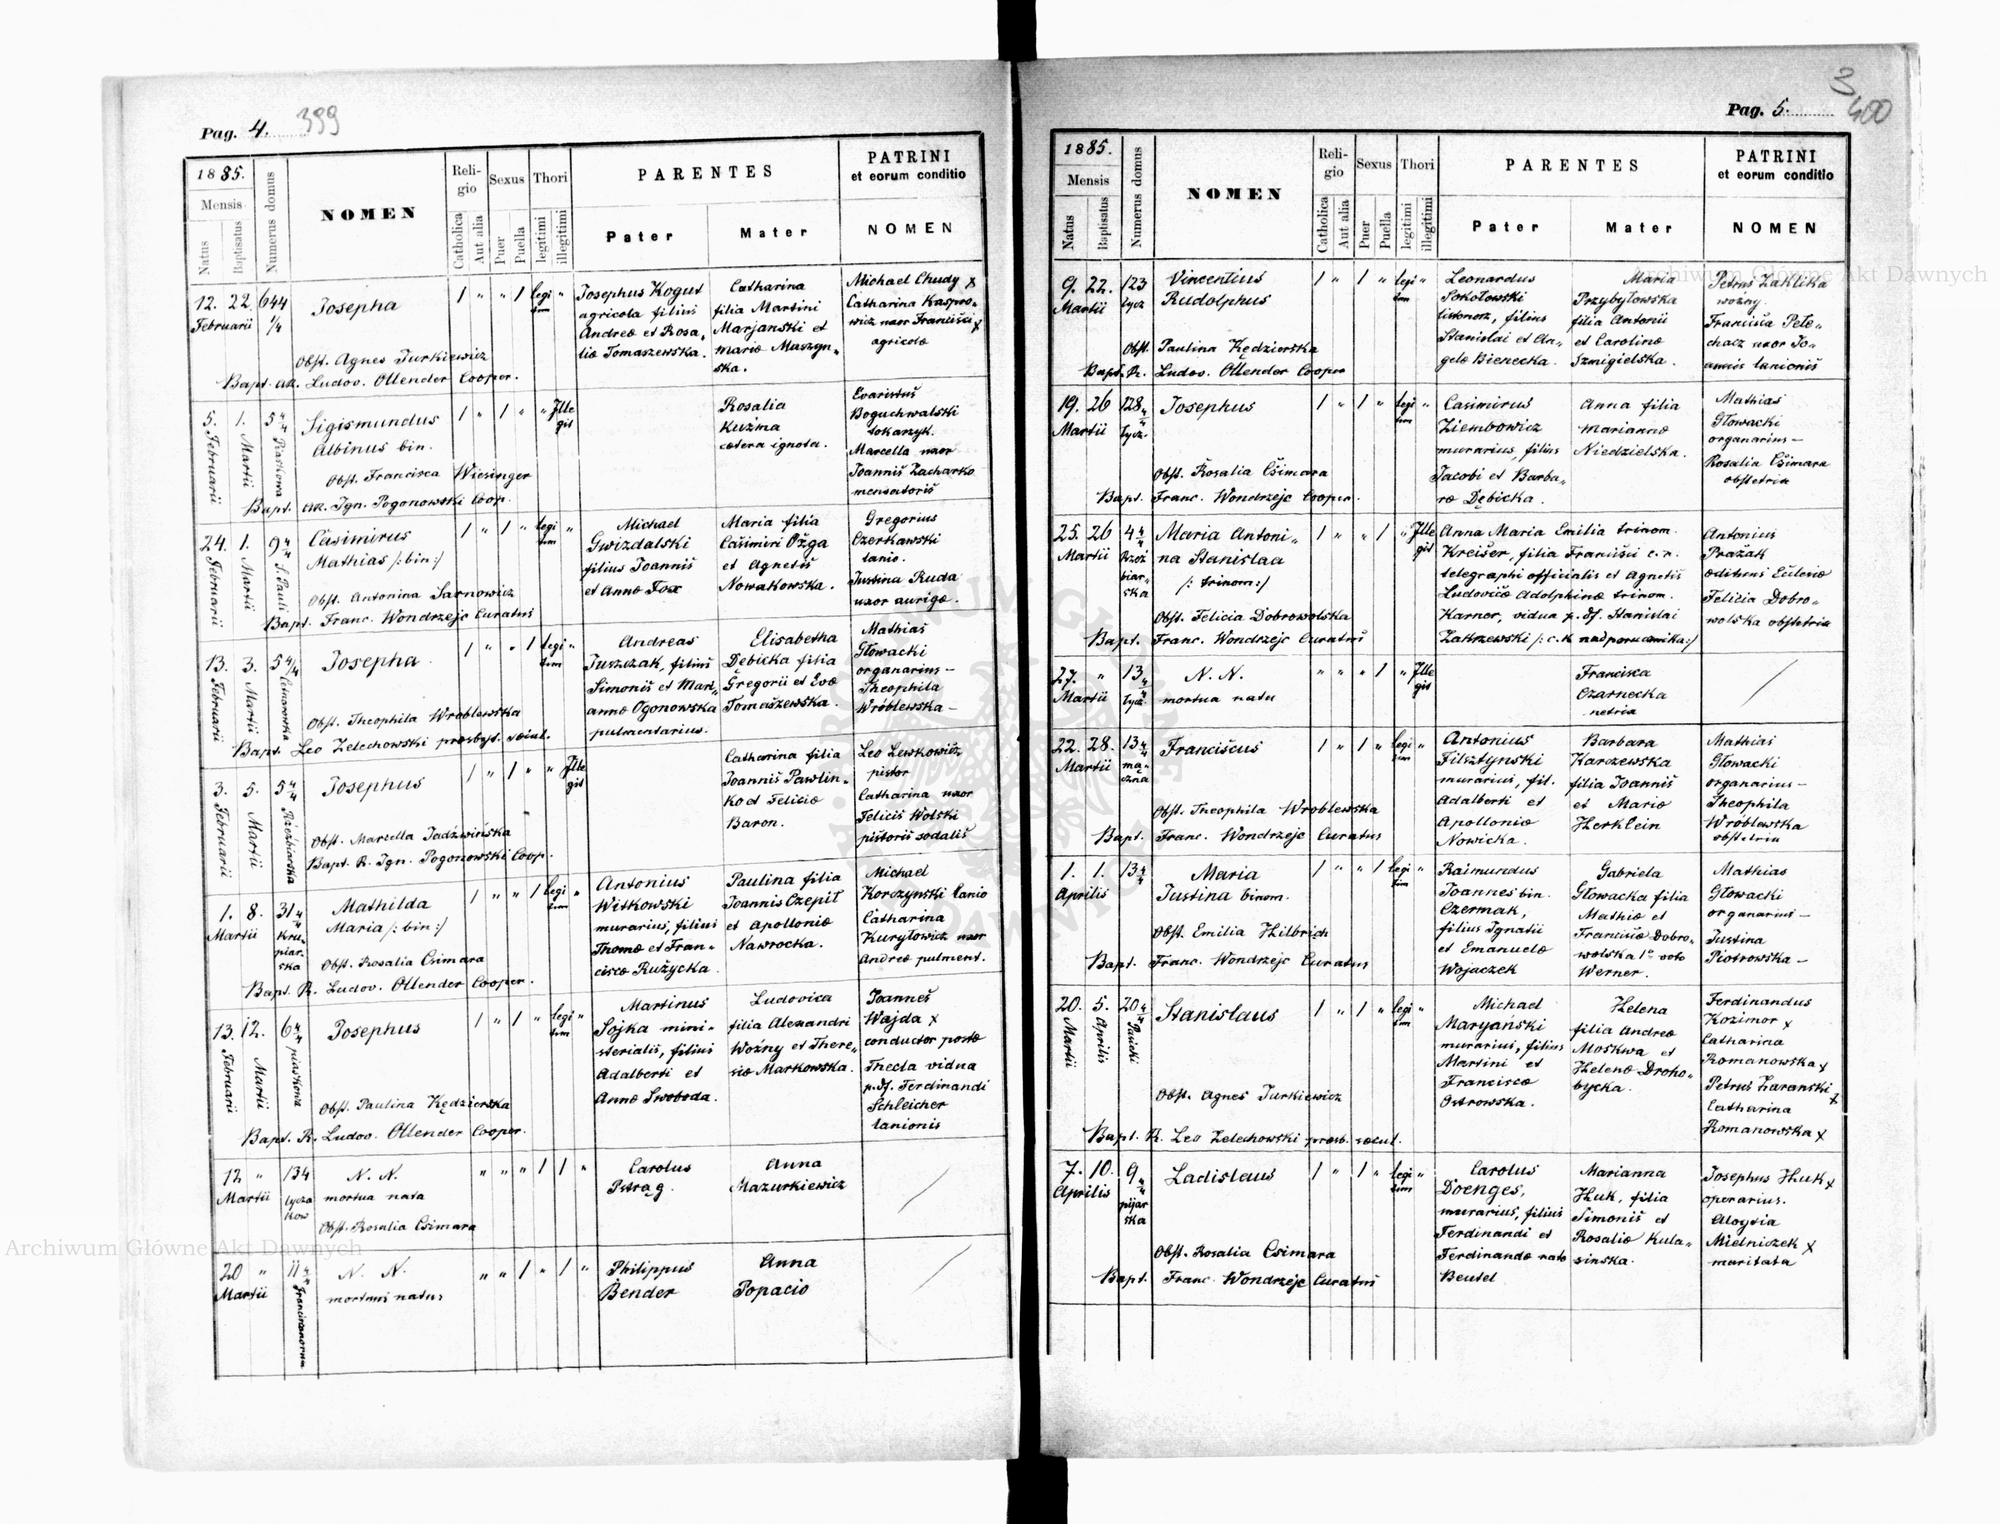 Pag. 4. 399
1885.
Mensis
Natus
Baptisatus
Numerus domus
NOMEN
Religio
Catholica
Aut alia
Sexus
Puer
Puella
Thori
legitimi
illegitimi
PARENTES
Pater
Mater
PATRINI
et eorum conditio
NOMEN
12. 22. 644 1/4
Februarii
Josepha
1 " " 1 legitim "
Josephus Kogut
agricola filius
Andreæ et Rosa-
liæ Tomaszewska.
Catharina
filia Martini
Marjanski et
Mariæ Muszyn-
ska.
Michael Chudy x
Catharina Kaspro-
wicz uxor Francisci x
agricolæ
Obst. Agnes Jurkiewicz
Bapt. AR. Ludov. Ollender Cooper.
5. 1. 5 4/4
Februarii Martii Piaskowa
Sigismundus
Albinus bin.
1 " 1 " " Illegit
Rosalia
Kuzma
cætera ignota.
Evaristus
Boguchwalski
tokarzyk.
Marcella uxor
Joannis Zacharko
mensatoris
Obst. Francisca Wiesinger
Bapt. AR. Ign. Pogonowski Coop.
24. 1. 9 4/4
Februarii Martii S. Pauli
Casimirus
Mathias /:bin:/
1 " 1 " legitim "
Michael
Gwizdalski
filius Joannis
et Annæ Fox
Maria filia
Casimiri Ożga
et Agnetis
Nowakowska.
Gregorius
Czerkawski
lanio.
Justina Ruda
uxor aurigæ.
Obst. Antonina Tarnowicz
Bapt. Franc. Wondrzejc Curatus
13. 3. 5 4/4
Februarii Martii
Josepha.
1 " " 1 legitim "
Andreas
Juszczak, filius
Simonis et Mari-
annæ Ogonowska
pulmentarius.
Elisabetha
Dębicka filia
Gregorii et Evæ
Tomaszewska.
Mathias
Głowacki
organarius -
Theophila
Wróblewska -
Obst. Theophila Wróblewska
Bapt. Leo Zelechowski presbyt. sæcul.
3. 5. 5 4/4
Februarii Martii Rzeźbiarska
Josephus
1 " 1 " " Illegit
Catharina filia
Joannis Pawlin-
ko et Feliciæ
Baron.
Leo Lewkowicz
pistor
Catharina uxor
Felicis Wolski
pistoris sodalis
Obst. Marcella Jadźwińska
Bapt. R. Ign. Pogonowski Coop.
1. 8. 31 4/4
Martii Krupiarska
Mathilda
Maria /:bin:/
1 " " 1 legitim "
Antonius
Witkowski
murarius, filius
Thomæ et Fran-
ciscæ Rużycka.
Paulina filia
Joannis Czepil
et Apolloniæ
Nawrocka.
Michael
Korczynski lanio
Catharina
Kuryłowicz uxor
Andreæ pulment.
Obst. Rosalia Csimara
Bapt. R. Ludov. Ollender Cooper.
13. 12. 6 4/4
Februarii Martii piaskowa
Josephus
1 " 1 " legitim "
Martinus
Sojka mini-
sterialis, filius
Adalberti et
Annæ Swoboda.
Ludovica
filia Alexandri
Woźny et There-
siæ Markowska.
Joannes
Wajda x
conductor postæ
Thecla vidua
p. df. Ferdinandi
Schleicher
lanionis
Obst. Paulina Kędzierska
Bapt. R. Ludov. Ollender Cooper.
12 " 134
Martii Łyczakow
N. N.
mortua nata
" " " 1 1 "
Carolus
Pstrąg.
Anna
Mazurkiewicz
Obst. Rosalia Csimara
20 " 11 4/4
Martii Franciscanorum
N. N.
mortuus natus
" " 1 " 1 "
Philippus
Bender
Anna
Popacio
Pag. 5. 3 400
1885.
Mensis
Natus
Baptisatus
Numerus domus
NOMEN
Religio
Catholica
Aut alia
Sexus
Puer
Puella
Thori
legitimi
illegitimi
PARENTES
Pater
Mater
PATRINI
et eorum conditio
NOMEN
9. 22. 123
Martii Łycz
Vincentius
Rudolphus
1 " 1 " legitim "
Leonardus
Sokołowski
listonosz, filius
Stanislai et An-
gelæ Bienecka.
Maria
Przybyłowska
filia Antonii
et Carolinæ
Szmigielska.
Petrus Zaklika
woźny.
Francisca Pele-
chacz uxor Jo-
annis lanionis
Obst. Paulina Kędzierska
Bapt. R. Ludov. Ollender Cooper
19. 26 128 4/4
Martii Łycz.
Josephus
1 " 1 " legitim "
Casimirus
Ziembowicz
murarius, filius
Jacobi et Barba-
ræ Dębicka.
Anna filia
Mariannæ
Niedzielska.
Mathias
Głowacki
organarius -
Rosalia Csimara
obstetrix
Obst. Rosalia Csimara
Bapt. Franc. Wondrzejc Cooper.
25. 26 4 4/4
Martii Rzeźbiarska
Maria Antoni-
na Stanislaa
/: trinom:/
1 " " 1 " Illegit
Anna Maria Emilia trinom.
Kreiser, filia Francisci c.r.
telegraphi officialis et Agnetis
Ludovicæ Adolphinæ trinom.
Karner, vidua p. df. Stanislai
Zakrzewski /: c.k. nadporucznika:/
Antonius
Prażak
ædituus Ecclesiæ
Felicia Dobro-
wolska obstetrix
Obst. Felicia Dobrowolska
Bapt. Franc. Wondrzejc Curatus
27. " 13 4/4
Martii Łycz.
N. N.
mortua nata
" " " 1 " Illegit
Francisca
Czarnecka
netrix
22. 28. 13 4/4
Martii maczna
Franciscus
1 " 1 " legitim "
Antonius
Filsztynski
murarius, fil.
Adalberti et
Apolloniæ
Nowicka.
Barbara
Karczewska
filia Joannis
et Mariæ
Herklein
Mathias
Głowacki
organarius -
Theophila
Wróblewska
obstetrix
Obst. Theophila Wróblewska
Bapt. Franc. Wondrzejc Curatus
1. 1. 13 4/4
Aprilis
Maria
Justina binom.
1 " " 1 legitim "
Raimundus
Joannes bin.
Czermak,
filius Ignatii
et Emanuelæ
Wojaczek
Gabriela
Głowacka filia
Mathiæ et
Franciscæ Dobro-
wolska 1o voto
Werner.
Mathias
Głowacki
organarius -
Justina
Piotrowska -
Obst. Emilia Hilbrich
Bapt. Franc. Wondrzejc Curatus
20. 5. 20 4/4
Martii Aprilis
Stanislaus
1 " 1 " legitim "
Michael
Maryański
murarius, filius
Martini et
Franciscæ
Ostrowska.
Helena
filia Andreæ
Moskwa et
Helenæ Droho-
bycka.
Ferdinandus
Kozimor x
Catharina
Romanowska x
Petrus Zaranski x
Catharina
Romanowska x
Obst. Agnes Jurkiewicz
Bapt. R. Leo Zelechowski presb. sæcul.
7. 10. 9 4/4
Aprilis pijarska
Ladislaus
1 " 1 " legitim "
Carolus
Doenges,
murarius, filius
Ferdinandi et
Ferdinandæ nata
Beutel
Marianna
Huk, filia
Simonis et
Rosaliæ Kula-
sinska.
Josephus Huk x
operarius.
Aloysia
Mielniczek x
maritata
Obst. Rosalia Csimara
Bapt. Franc. Wondrzejc Curatus
Archiwum Główne Akt Dawnych
Archiwum Główne Akt Dawnych